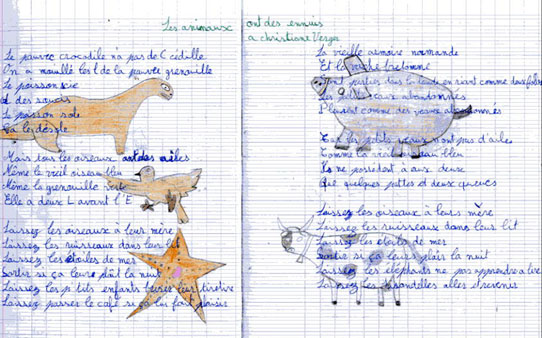 Les animaux ont des ennuis
a christiane Verger
Le pauvre crocodile n'a pas de C cédille
On a mouillé les l de la pauvre grenouille
Le poisson scie
a des soucis
Le poisson sole
ça le désole
Mais tous les oiseaux ont des ailes
Même le vieil oiseau bleu
Même la grenouille verte
Elle a deux L avant l'E
Laissez les oiseaux à leur mère
Laissez les ruisseaux dans leur lit
Laissez les étoiles de mer
Sortir si ça leur plaît la nuit
Laissez les p'tits enfants briser leur tirelire
Laissez passer le café si ça lui fait plaisir
La vieille armoire normande
Et la vache bretonne
Sont parties dans la lande en riant comme deux folles
Les petits veaux abandonnés
Pleurent comme des veaux abandonnés
Car les petits veaux n'ont pas d'ailes
Comme le vieil oiseau bleu
Ils ne possèdent à eux deux
Que quelques pattes et deux queues
Laissez les oiseaux à leurs mère
Laissez les ruisseaux dans leur lit
Laissez les étoiles de mer
Sortir si ça leur plaît la nuit
Laissez les éléphants ne pas apprendre a lire
Laissez les hirondelles aller et revenir